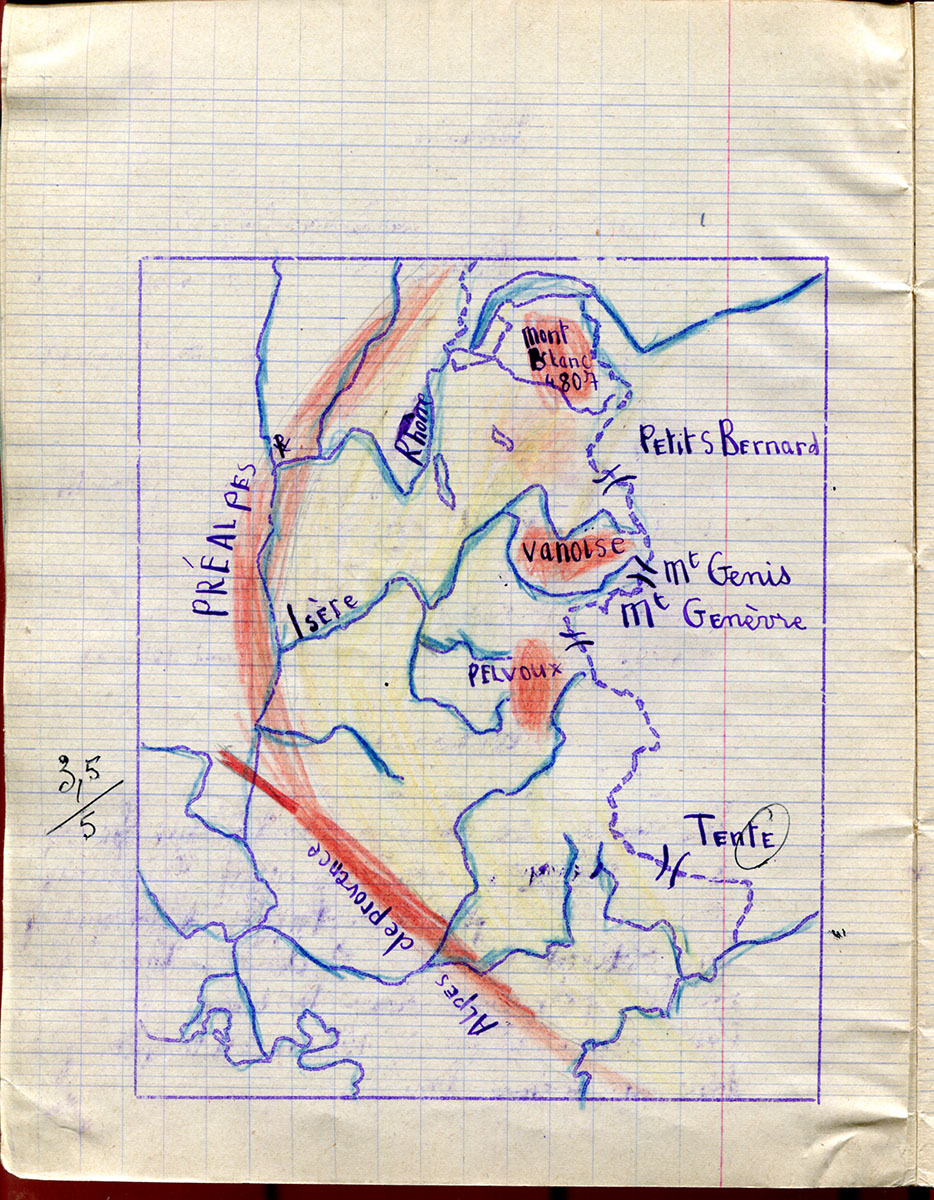 mont
Blanc
4807
Rhône
Petit S Bernard
PRÉALPES
Vanoise
Mt Genis
Mt Genèvre
Isère
PELVOUX
3,5
5
TENTE
Alpes de provence